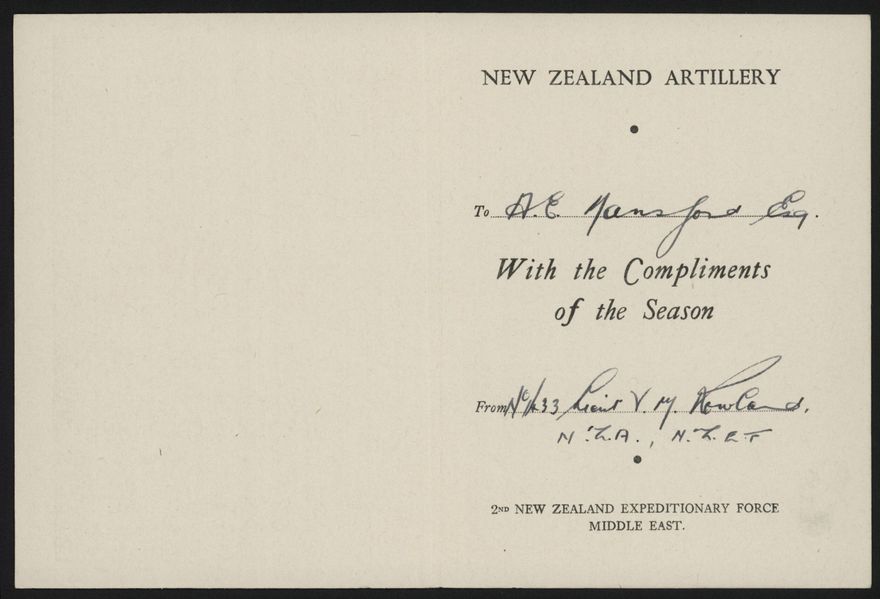 NEW ZEALAND ARTILLERY
To A.E. Mansford Esq.
With the Compliments
of the Season
From Lieut V. M. Rowland.
N.Z.A., N.Z.E.F
2ND NEW ZEALAND EXPEDITIONARY FORCE
MIDDLE EAST.